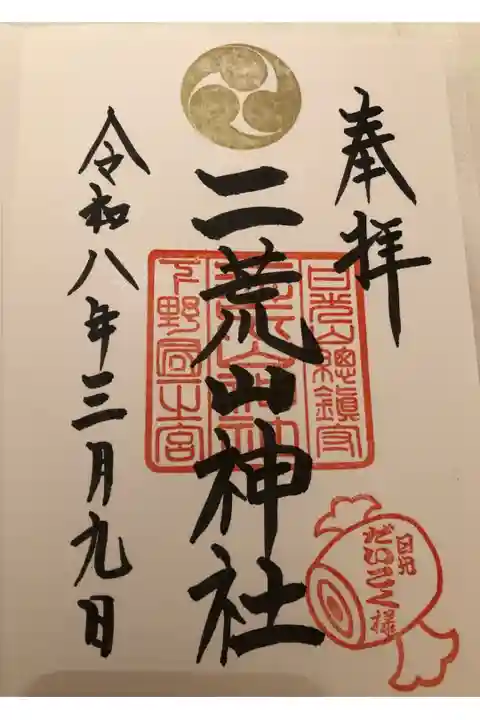 奉拝
日光山總鎮守
二荒山神社
下野國一之宮
令和八年三月九日
日光
だいこく様